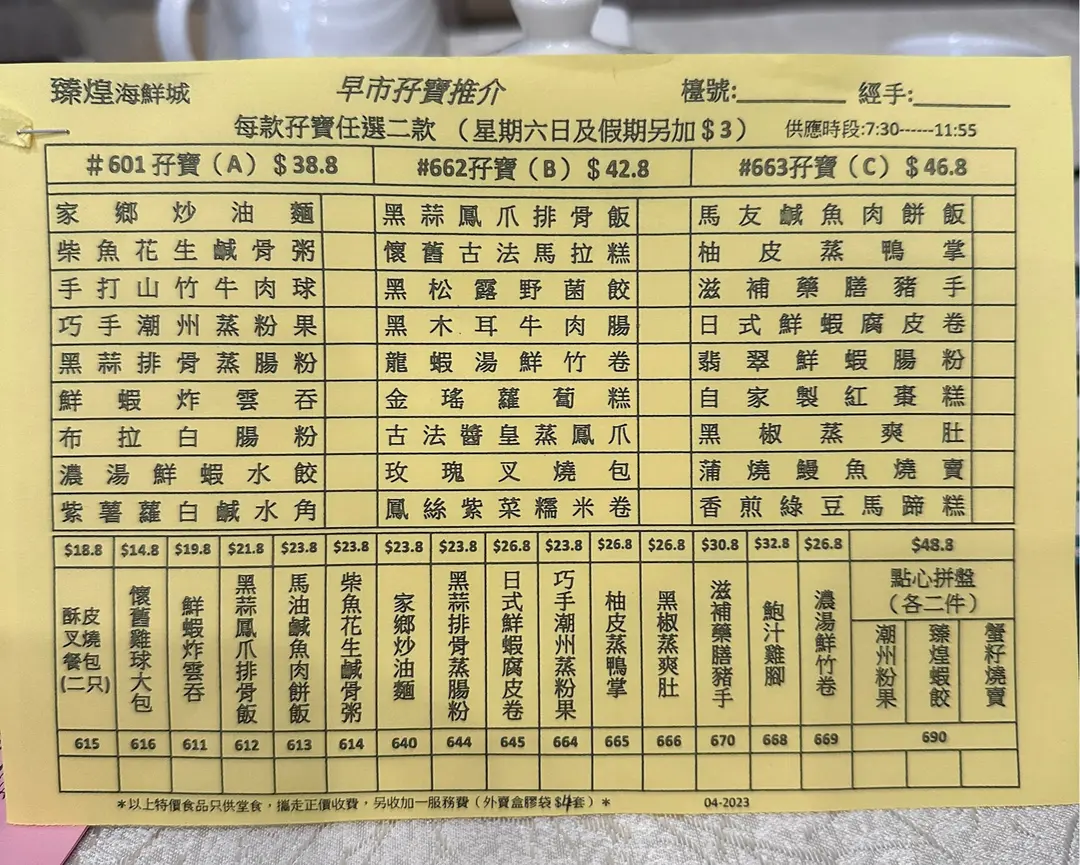 臻煌海鮮城 早市孖寶推介 檯號:________ 經手:________
每款孖寶任選二款 （星期六日及假期另加＄3） 供應時段:7:30------11:55
＃601 孖寶（A）＄38.8 #662孖寶（B）＄42.8 #663孖寶（C）＄46.8
家鄉炒油麵 黑蒜鳳爪排骨飯 馬友鹹魚肉餅飯
柴魚花生鹹骨粥 懷舊古法馬拉糕 柚皮蒸鴨掌
手打山竹牛肉球 黑松露野菌餃 滋補藥膳豬手
巧手潮州蒸粉果 黑木耳牛肉腸 日式鮮蝦腐皮卷
黑蒜排骨蒸腸粉 龍蝦湯鮮竹卷 翡翠鮮蝦腸粉
鮮蝦炸雲吞 金瑤蘿蔔糕 自家製紅棗糕
布拉白腸粉 古法醬皇蒸鳳爪 黑椒蒸爽肚
濃湯鮮蝦水餃 玫瑰叉燒包 蒲燒鰻魚燒賣
紫薯蘿白鹹水角 鳳絲紫菜糯米卷 香煎綠豆馬蹄糕
$18.8 $14.8 $19.8 $21.8 $23.8 $23.8 $23.8 $23.8 $26.8 $23.8 $26.8 $26.8 $30.8 $32.8 $26.8 $48.8
酥皮叉燒餐包(二只)
懷舊雞球大包
鮮蝦炸雲吞
黑蒜鳳爪排骨飯
馬油鹹魚肉餅飯
柴魚花生鹹骨粥
家鄉炒油麵
黑蒜排骨蒸腸粉
日式鮮蝦腐皮卷
巧手潮州蒸粉果
柚皮蒸鴨掌
黑椒蒸爽肚
滋補藥膳豬手
鮑汁雞腳
濃湯鮮竹卷
點心拼盤
（各二件）
潮州粉果
臻煌蝦餃
蟹籽燒賣
615 616 611 612 613 614 640 644 645 664 665 666 670 668 669 690
＊以上特價食品只供堂食，攜走正價收費，另收加一服務費（外賣盒膠袋$4套）＊ 04-2023